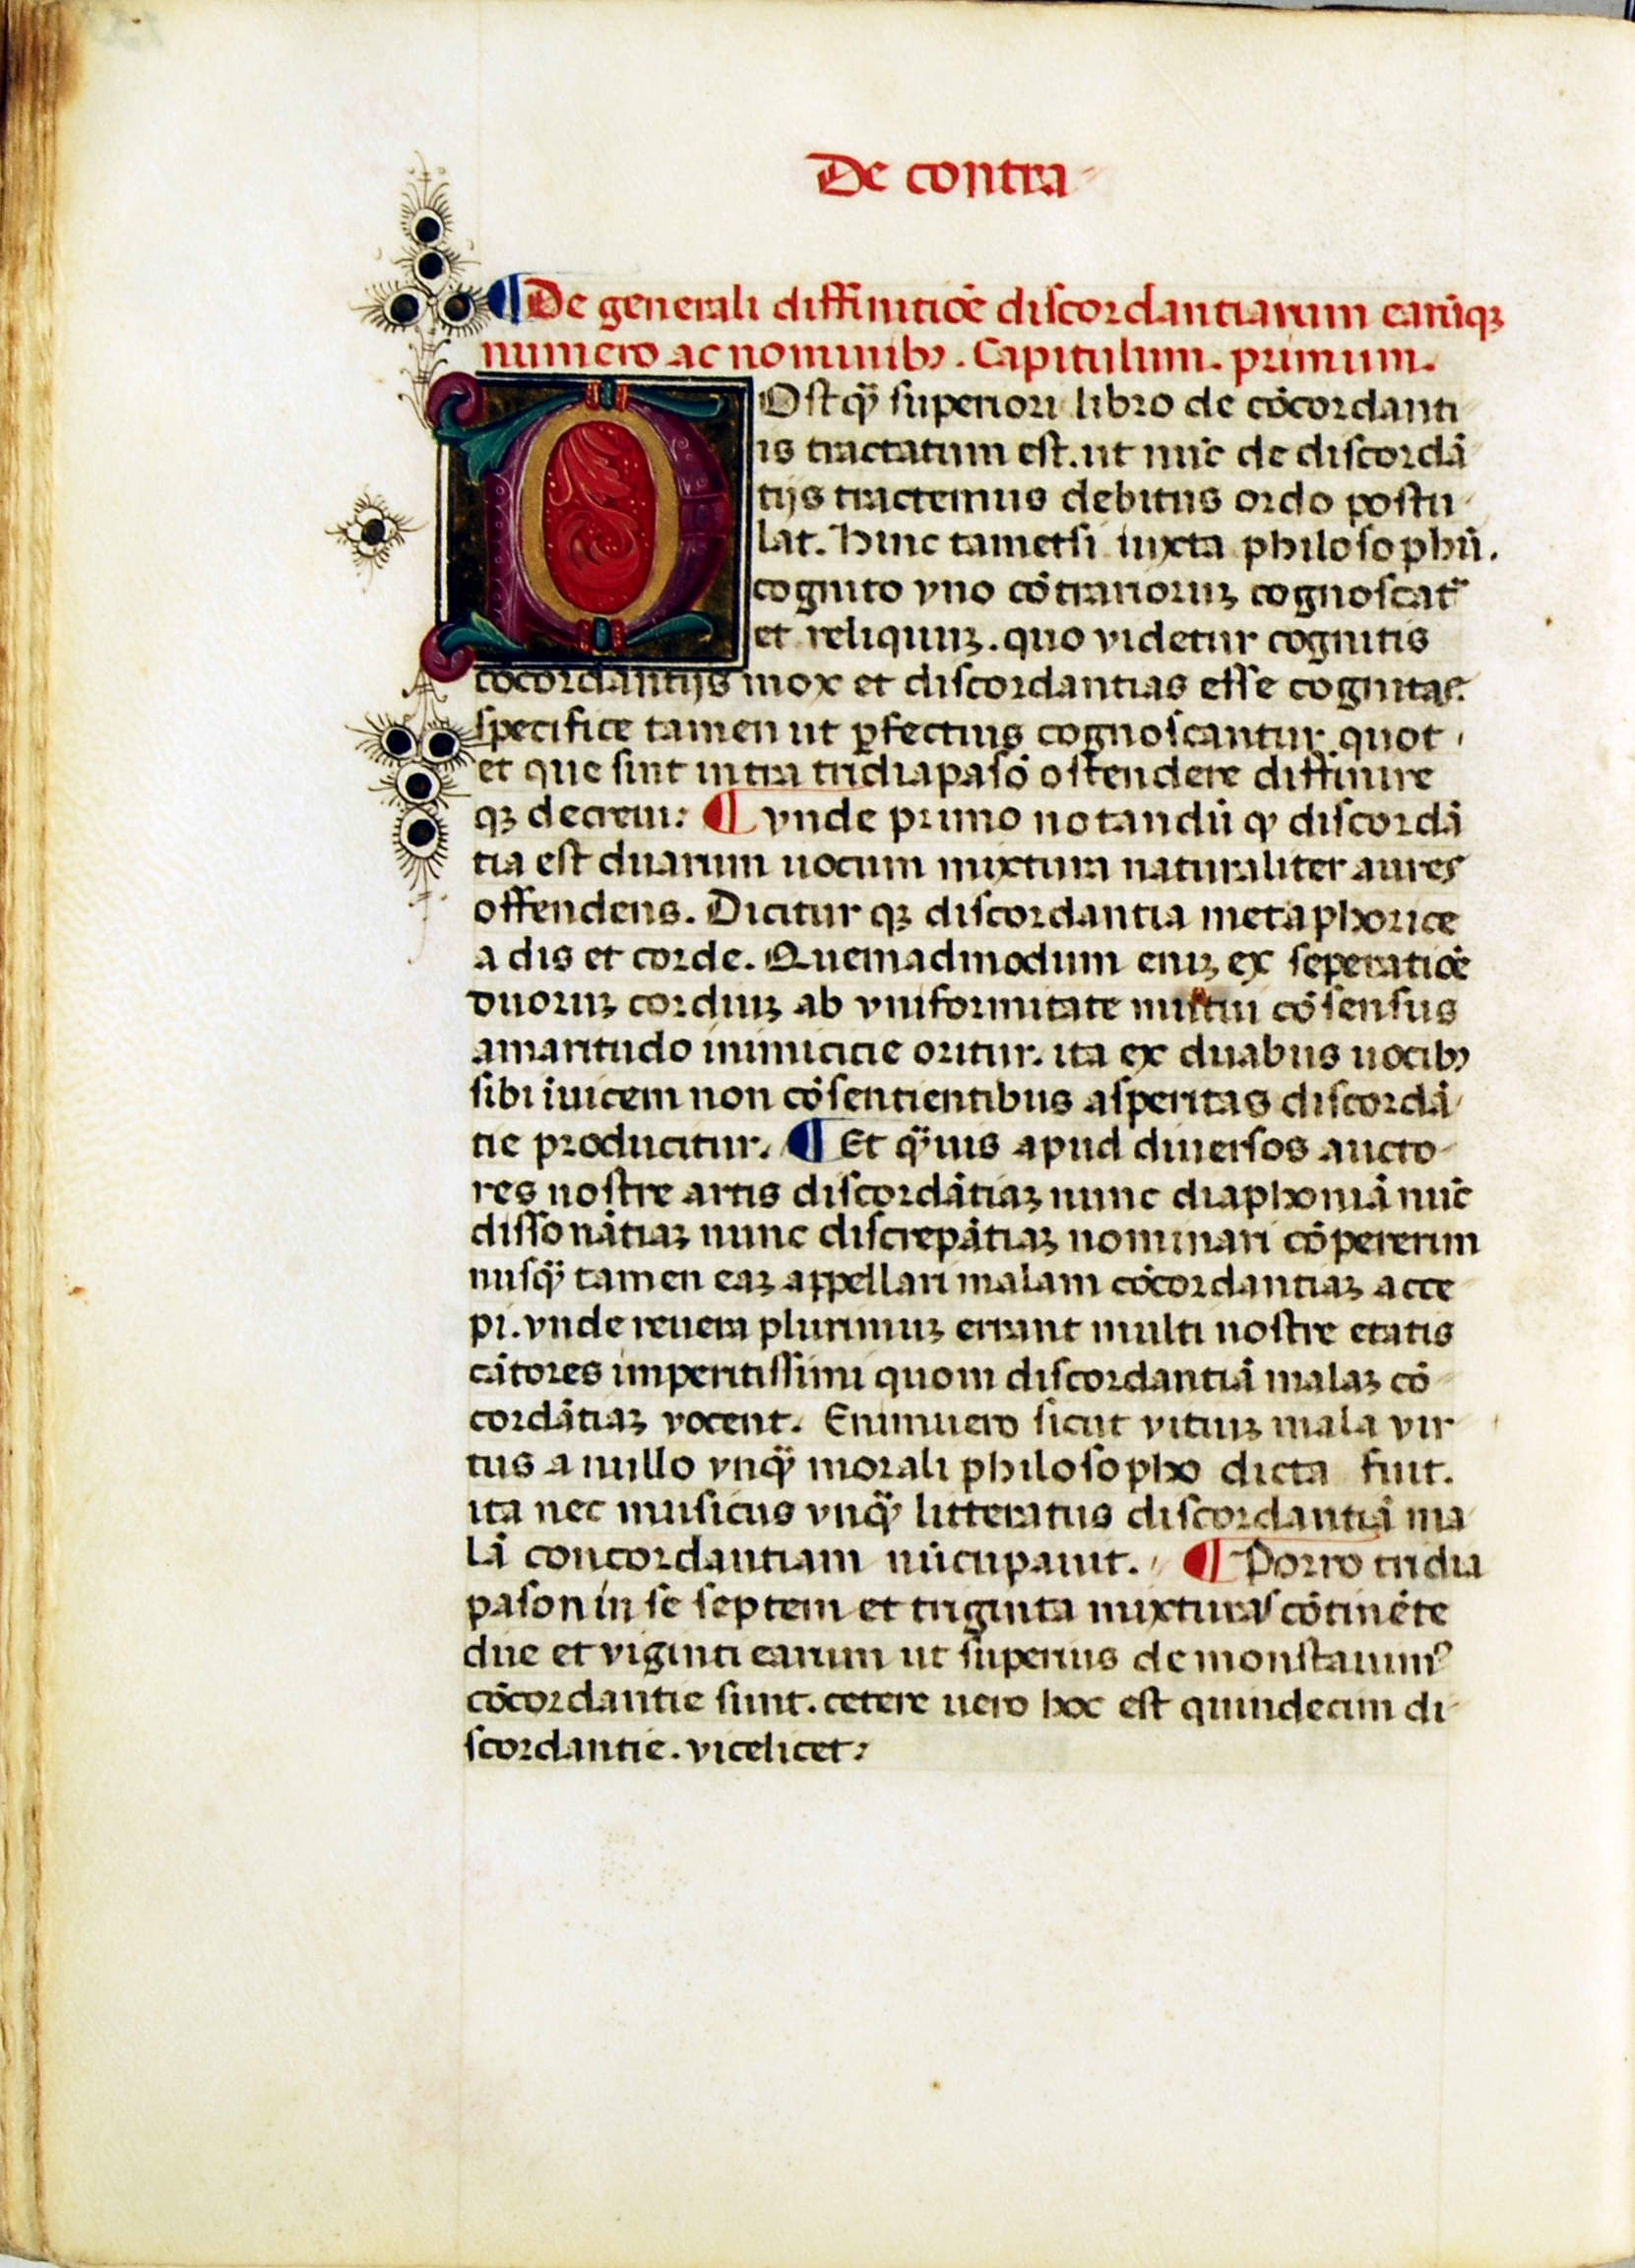 De contra-
¶ De generali diffinitiōe discordantiarum earūqꝫ
numero ac nominibꝰ. Capitulum. primum.
POstqᷓ superiori libro de cōcordanti
is tractatum est. ut nūc de discordā
tijs tractemus debitus ordo postu
lat. Hinc tametsi iuxta philosophū.
cognito vno cōtrarioruꝫ cognoscat᷑
et reliquuꝫ. quo videtur cognitis
cōcordantijs mox et discordantias esse cognitas.
specifice tamen ut ꝑfectius cognoscantur. quot
et que sint intra tridiapasō ostendere diffinire
qꝫ decreui: ¶ vnde primo notandū ꝙ discordā
tia est duarum uocum mixtura naturaliter aures
offendens. Dicitur qꝫ discordantia metaphorice
a dis et corde. Quemadmodum eniꝫ ex seperatiōe
duoruꝫ corduꝫ ab vniformitate mutui cōsensus
amaritudo inimicicie oritur. ita ex duabus uocibꝰ
sibi īuicem non cōsentientibus asperitas discordā
tie producitur. ¶ Et qᷓuis apud diuersos aucto-
res nostre artis discordātiaꝫ nunc diaphoniā nūc
dissonātiaꝫ nunc discrepātiaꝫ nominari cōpererim
nusqᷓ tamen eaꝫ appellari malam cōcordantiaꝫ acce
pi. vnde reuera plurimuꝫ errant multi nostre etatis
cātores imperitissimi quom discordantiā malaꝫ cō
cordātiaꝫ vocent. Enimuero sicut vitiuꝫ mala vir
tus a nullo vnqᷓ morali philosopho dicta fuit.
ita nec musicus vnqᷓ litteratus discordantiā ma
lā concordantiam nūcupauit. ¶ Porro tridia
pason in se septem et triginta mixturas cōtinēte
due et viginti earum ut superius demonstauimꝰ
cōcordantie sunt. cetere uero hoc est quindecim di
scordantie. vicelicet: